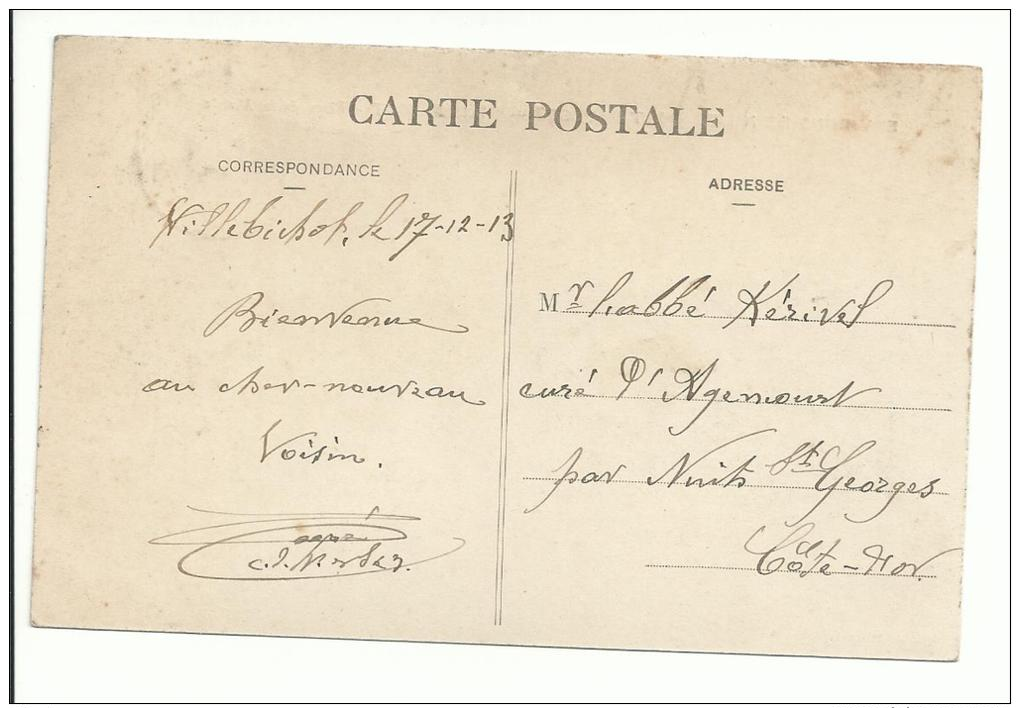 CARTE POSTALE
CORRESPONDANCE
Villebichot, le 17-12-13
Bienvenue
au cher-nouveau
Voisin.
ADRESSE
Mr l'abbé Kérivel
curé d'Agencourt
par Nuits St Georges
Côte-d'or.